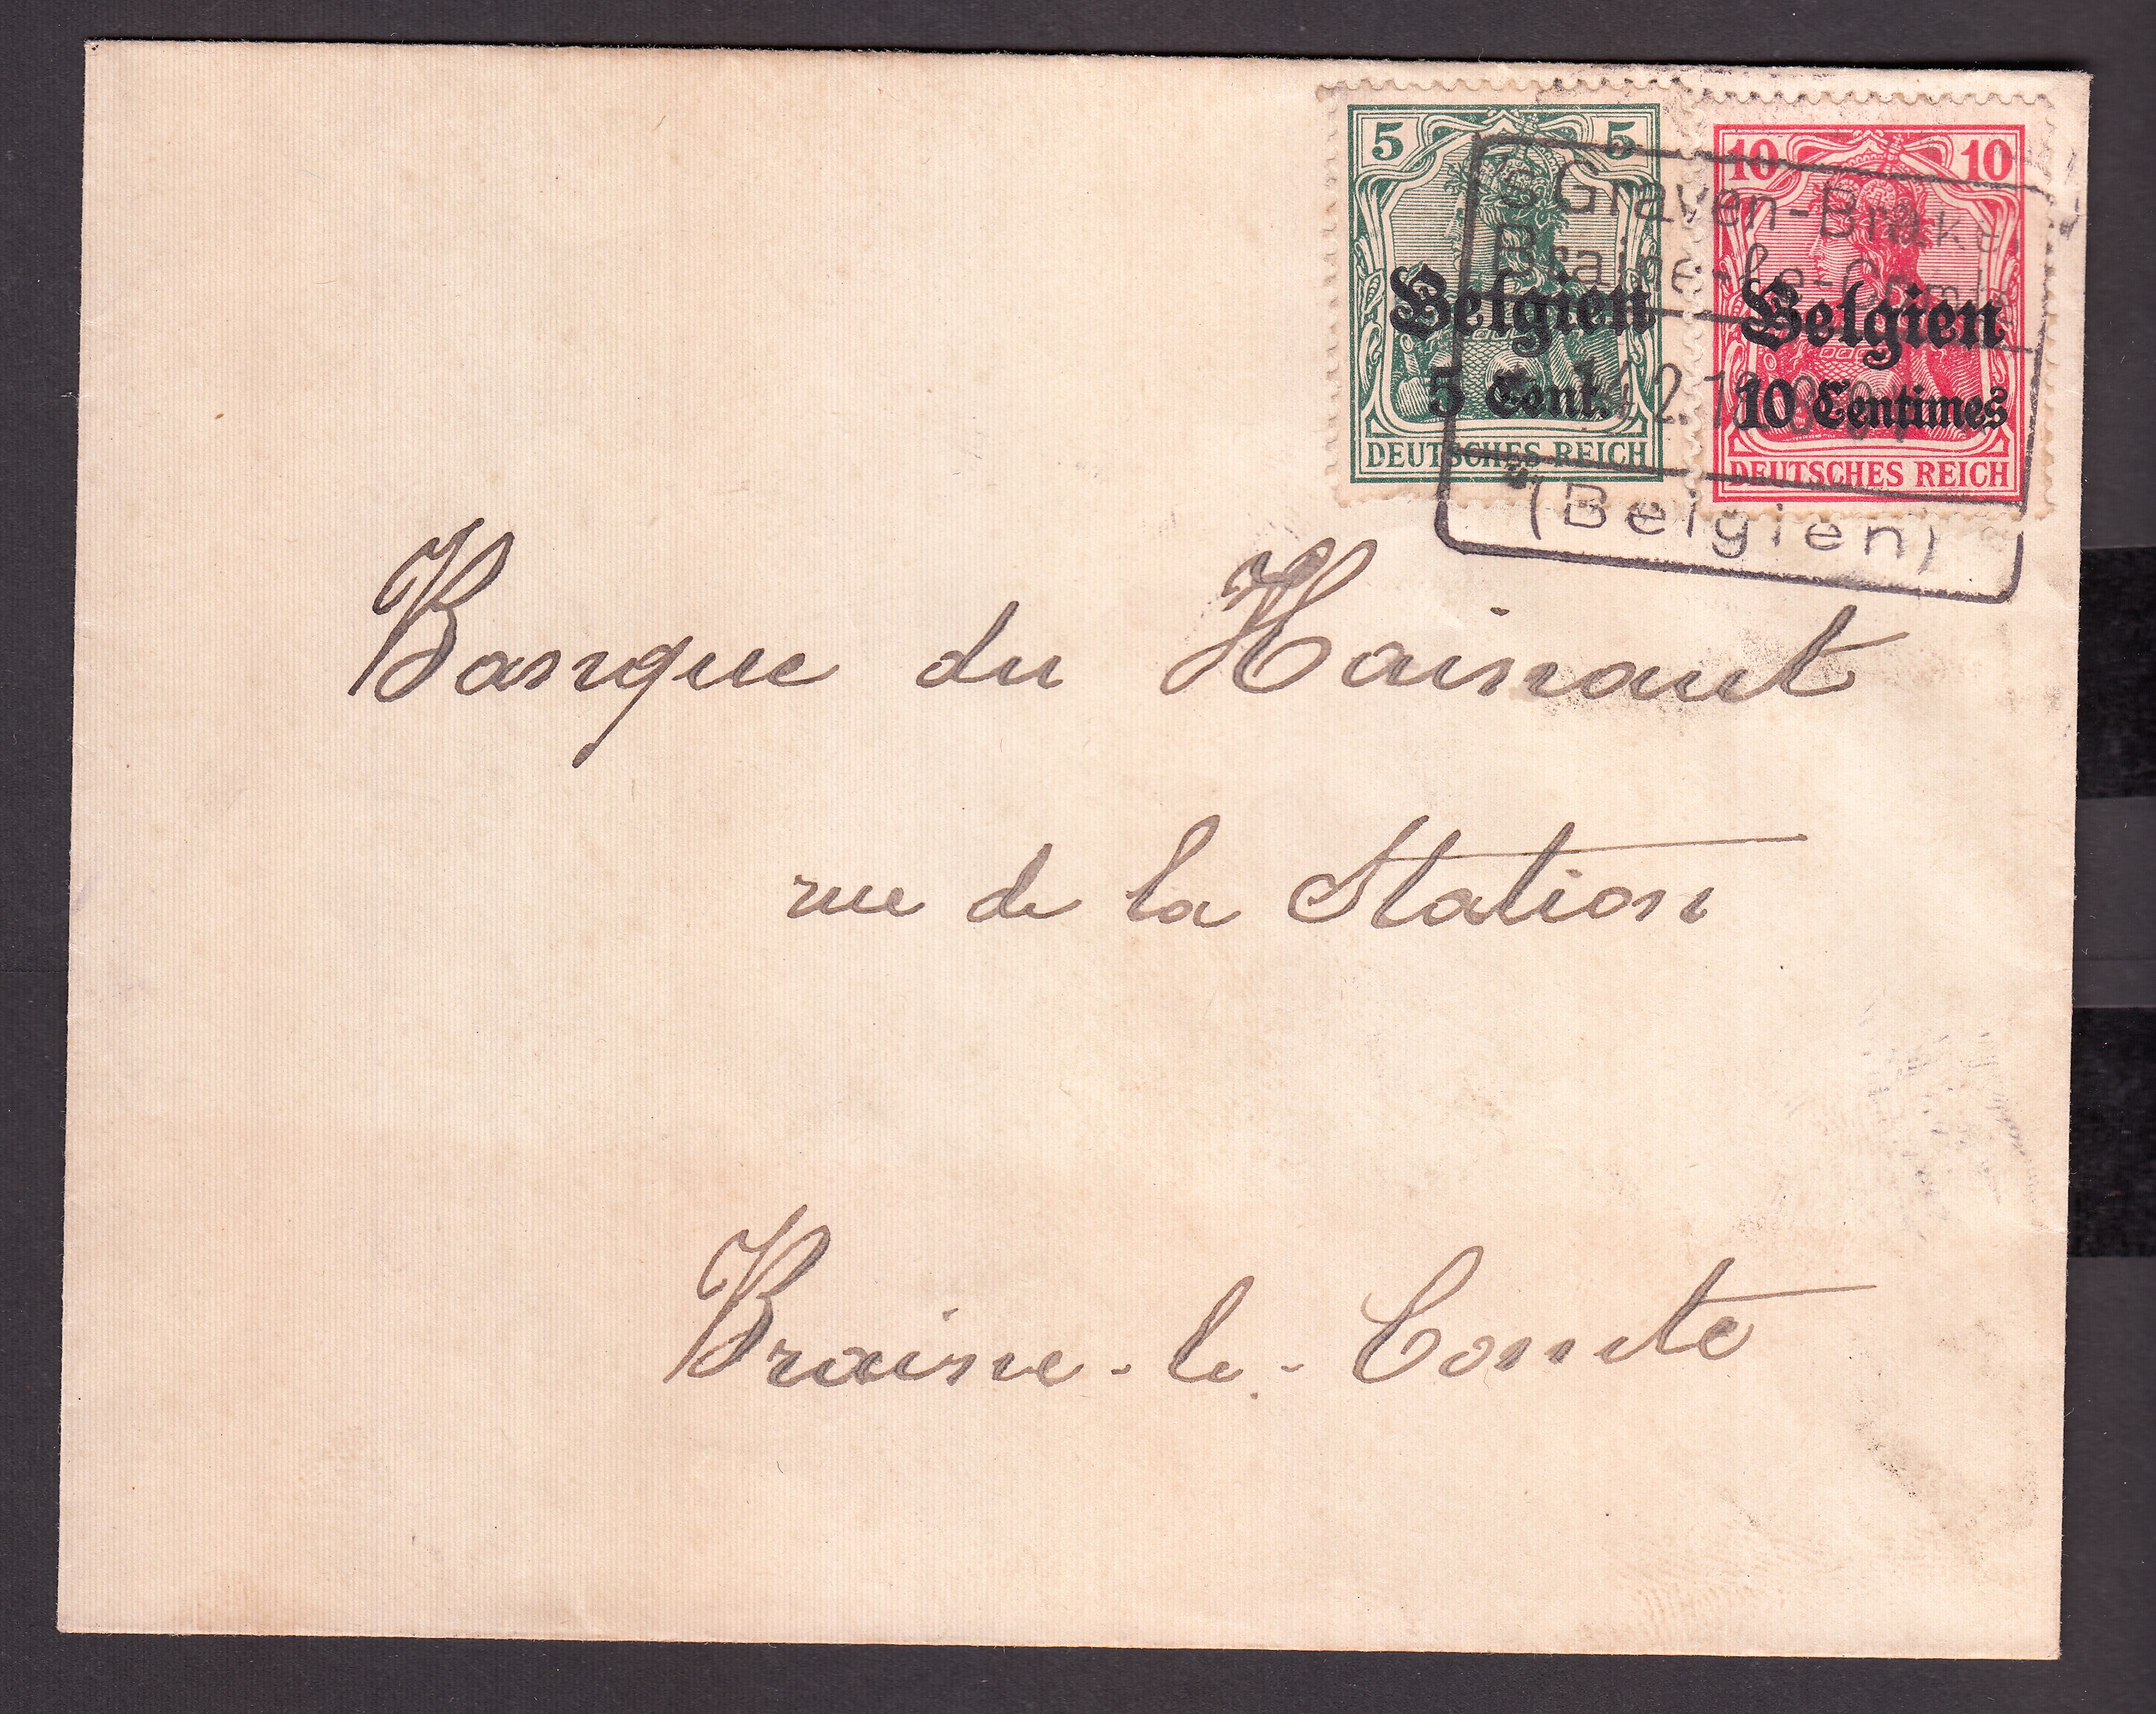 5 5
Belgien
5 Cent.
DEUTSCHES REICH
10 10
Belgien
10 Centimes
DEUTSCHES REICH
's Graven-Brakel
Braine-le-Comte
(Belgien)
Banque du Hainaut
rue de la Station
Braine-le-Comte